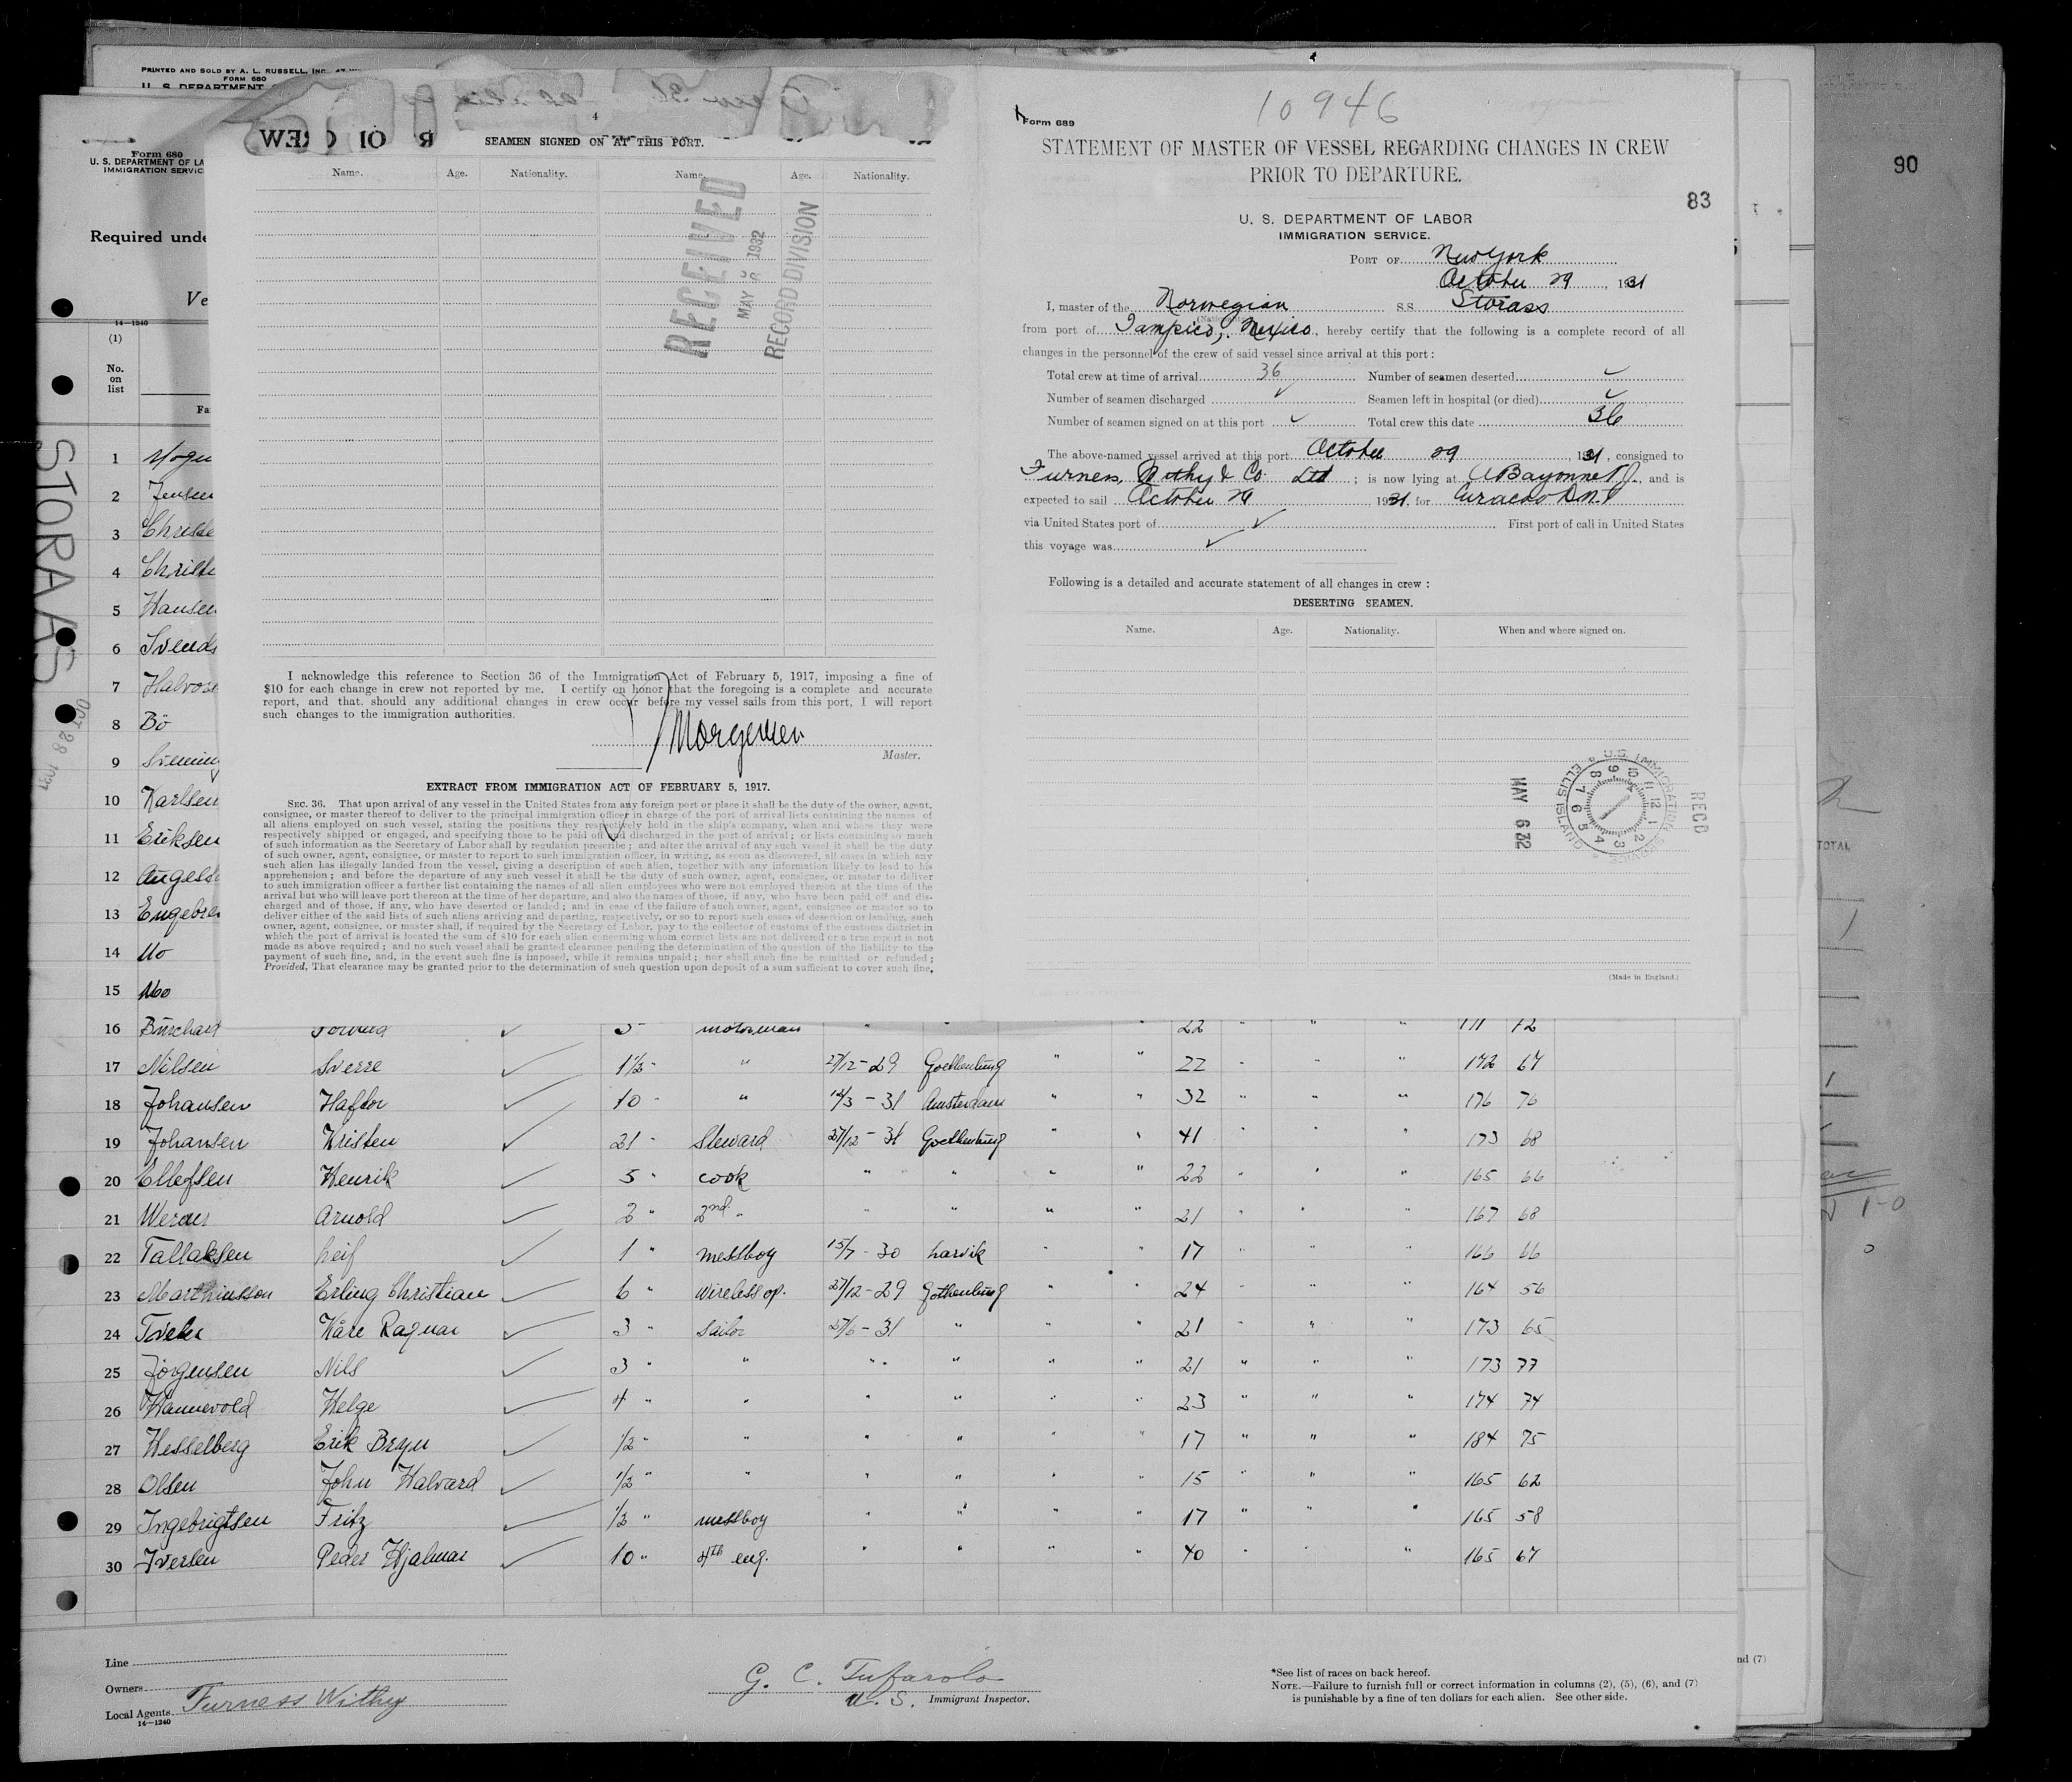 PRINTED AND SOLD BY A. L. RUSSELL, INC.
FORM 680
U. S. DEPARTMENT
Form 680
U. S. DEPARTMENT OF LA
IMMIGRATION SERVIC
Required unde
Ve
14—1240
(1)
No.
on
list
Fa
STORAAS
OCT 28 1931
4
SEAMEN SIGNED ON AT THIS PORT.
Name. Age. Nationality. Name. Age. Nationality.
RECEIVED
MAY 8 1932
RECORD DIVISION
I acknowledge this reference to Section 36 of the Immigration Act of February 5, 1917, imposing a fine of
$10 for each change in crew not reported by me. I certify on honor that the foregoing is a complete and accurate
report, and that should any additional changes in crew occur before my vessel sails from this port, I will report
such changes to the immigration authorities.
Morgensen
Master.
EXTRACT FROM IMMIGRATION ACT OF FEBRUARY 5, 1917.
SEC. 36. That upon arrival of any vessel in the United States from any foreign port or place it shall be the duty of the owner, agent,
consignee, or master thereof to deliver to the principal immigration officer in charge of the port of arrival lists containing the names of
all aliens employed on such vessel, stating the positions they respectively hold in the ship's company, when and where they were
respectively shipped or engaged, and specifying those to be paid off and discharged in the port of arrival; or lists containing so much
of such information as the Secretary of Labor shall by regulation prescribe; and after the arrival of any such vessel it shall be the duty
of such owner, agent, consignee, or master to report to such immigration officer, in writing, as soon as discovered, all cases in which any
such alien has illegally landed from the vessel, giving a description of such alien, together with any information likely to lead to his
apprehension; and before the departure of any such vessel it shall be the duty of such owner, agent, consignee, or master to deliver
to such immigration officer a further list containing the names of all alien employees who were not employed thereon at the time of the
arrival but who will leave port thereon at the time of her departure, and also the names of those, if any, who have been paid off and dis-
charged and of those, if any, who have deserted or landed; and in case of the failure of such owner, agent, consignee or master so to
deliver either of the said lists of such aliens arriving and departing, respectively, or so to report such cases of desertion or landing, such
owner, agent, consignee, or master shall, if required by the Secretary of Labor, pay to the collector of customs of the customs district in
which the port of arrival is located the sum of $10 for each alien concerning whom correct lists are not delivered or a true report is not
made as above required; and no such vessel shall be granted clearance pending the determination of the question of the liability to the
payment of such fine, and, in the event such fine is imposed, while it remains unpaid; nor shall such fine be remitted or refunded;
Provided, That clearance may be granted prior to the determination of such question upon deposit of a sum sufficient to cover such fine.
Form 689
10946
STATEMENT OF MASTER OF VESSEL REGARDING CHANGES IN CREW
PRIOR TO DEPARTURE.
83
90
U. S. DEPARTMENT OF LABOR
IMMIGRATION SERVICE.
PORT OF New York
October 29, 1931
I, master of the Norwegian S.S. Storaas
from port of Tampico, Mexico, hereby certify that the following is a complete record of all
changes in the personnel of the crew of said vessel since arrival at this port:
Total crew at time of arrival 36 Number of seamen deserted ✓
Number of seamen discharged ✓ Seamen left in hospital (or died) ✓
Number of seamen signed on at this port ✓ Total crew this date 36
The above-named vessel arrived at this port October 29, 1931, consigned to
Furness, Withy & Co Ltd; is now lying at Bayonne N.J., and is
expected to sail October 29 1931, for Curacao D.W.I
via United States port of ✓ First port of call in United States
this voyage was ✓
Following is a detailed and accurate statement of all changes in crew:
DESERTING SEAMEN.
Name. Age. Nationality. When and where signed on.
U.S. IMMIGRATION SERVICE ELLIS ISLAND
MAY 6 32
RECD
(Made in England.)
TOTAL
1 Mogen
2 Jensen
3 Christe
4 Christi
5 Hansen
6 Svends
7 Halvors
8 Bö
9 Svenning
10 Karlsen
11 Eriksen
12 Augess
13 Engebre
14 Mo
15 Moo
16 Burchard ✓ 5 motorman " " " 22 " " " 171 72
17 Nilsen Sverre ✓ 1½ " " 27/12-29 Goethenburg " " 22 " " " 172 67
18 Johansen Haftor ✓ 10 " " 14/3-31 Amsterdam " " 32 " " " 176 76
19 Johansen Kristen ✓ 21 " Steward 27/12-31 Goethenburg " " 41 " " " 173 68
20 Ellefsen Henrik ✓ 5 " cook " " " " 22 " " " 165 66
21 Werner Arnold ✓ 2 " 2nd " " " " " 21 " " " 167 68
22 Tallaksen Leif ✓ 1 " messboy 15/7-30 Larvik " " 17 " " " 166 66
23 Marthinsson Erling Christian ✓ 6 " Wireless op. 27/12-29 Gothenburg " " 24 " " " 164 56
24 Tveter Kåre Ragnar ✓ 3 " Sailor 27/6-31 " " " 21 " " " 173 65
25 Jorgensen Nils ✓ 3 " " " " " " 21 " " " 173 77
26 Hannevold Helge ✓ 4 " " " " " " 23 " " " 174 74
27 Hesselberg Erik Bryn ✓ 1/2 " " " " " " 17 " " " 184 75
28 Olsen John Halvard ✓ 1/2 " " " " " " 15 " " " 165 62
29 Ingebrigtsen Fritz ✓ 1/2 " messboy " " " " 17 " " " 165 58
30 Iversen Peder Hjalmar ✓ 10 " 4th eng. " " " " 40 " " " 165 67
Line
Owners
Local Agents Furness Withy
14—1240
G. C. Tufarolo
U. S. Immigrant Inspector.
*See list of races on back hereof.
NOTE.—Failure to furnish full or correct information in columns (2), (5), (6), and (7)
is punishable by a fine of ten dollars for each alien. See other side.
nd (7)